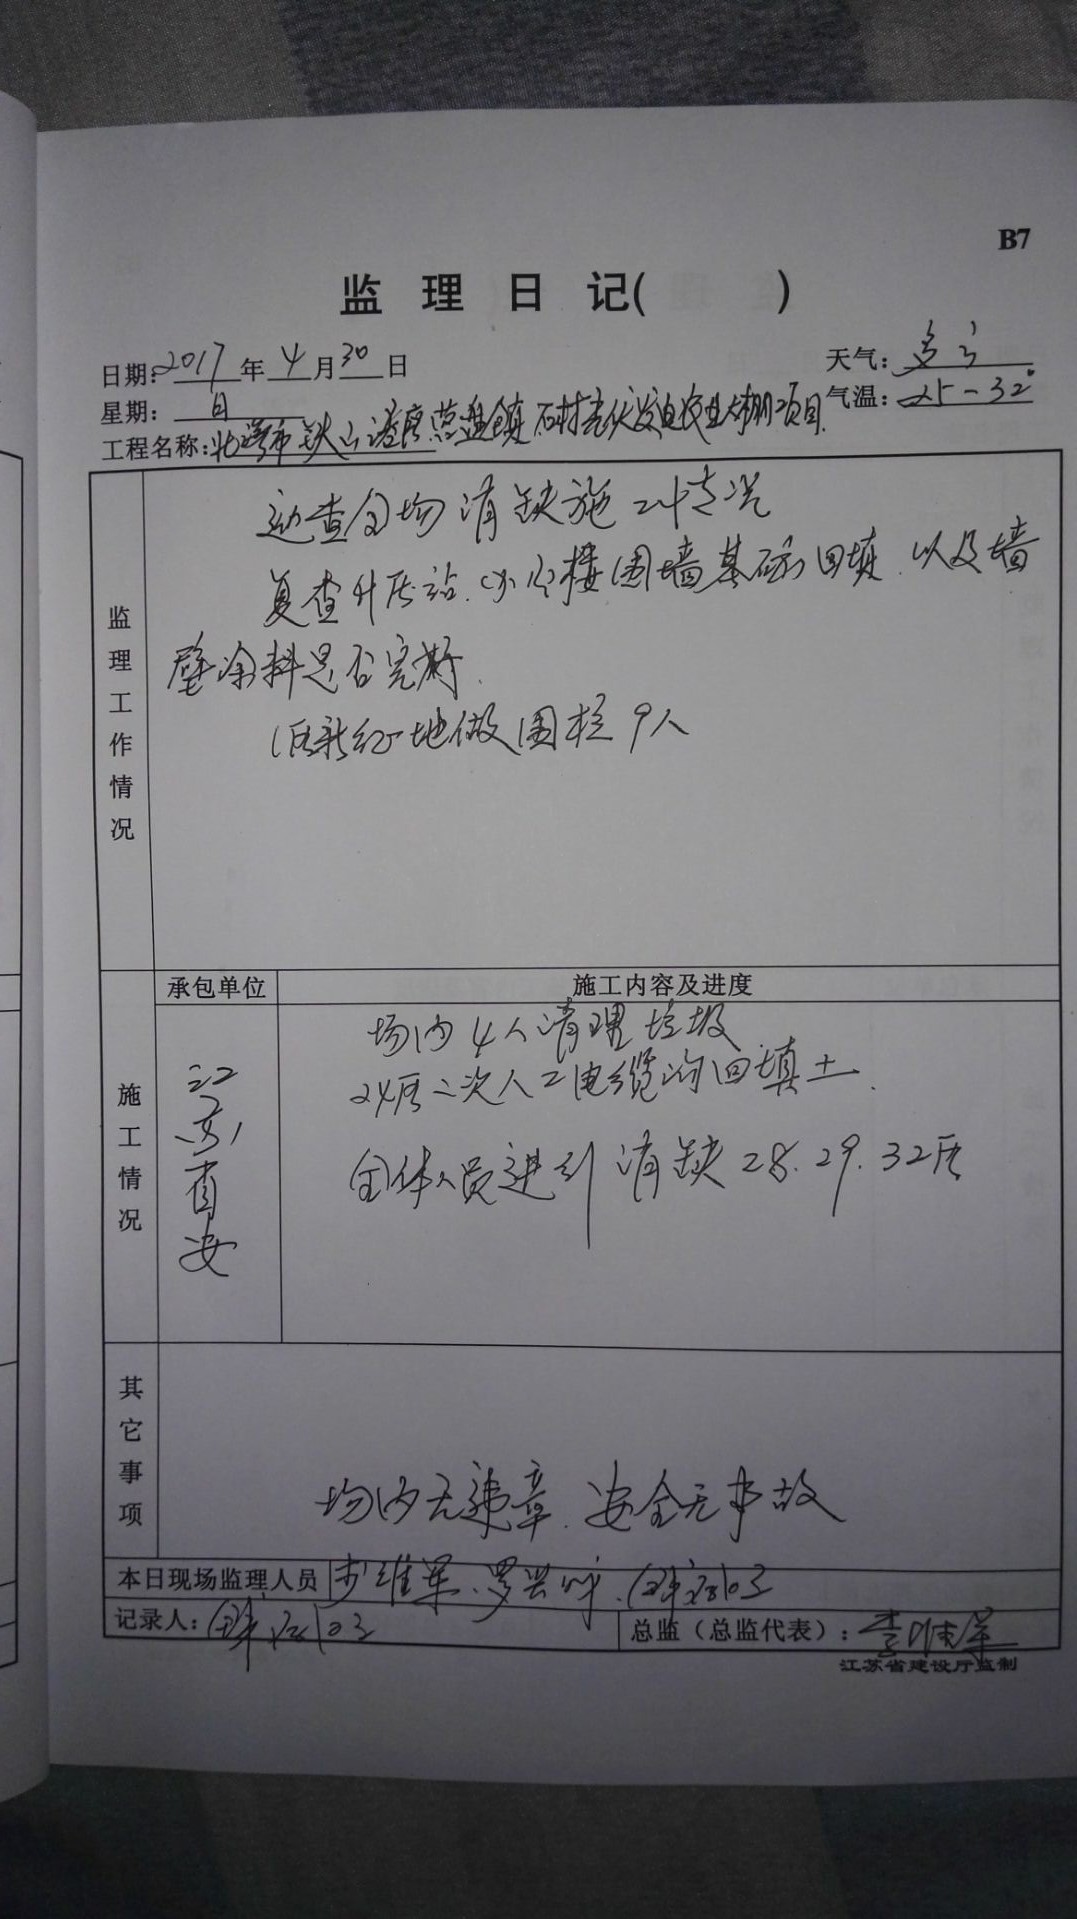 B7
监理日记( )
日期:2017年4月30日 天气:多云
星期:日 气温:25-32°
工程名称:北海市铁山港区营盘镇石村光伏发电农业大棚项目.
监理工作情况
巡查全场消缺施工情况
复查升压站.办公楼围墙基础回填.以及墙
壁涂料是否完善.
征地做围栏9人
承包单位 施工内容及进度
施工情况
江苏 安
场内4人清理垃圾
24 二次人工电缆沟回填土.
全体人员进行消缺28.29.32
其它事项
场内无违章.安全无事故
本日现场监理人员
记录人:
总监(总监代表):李维军
江苏省建设厅监制